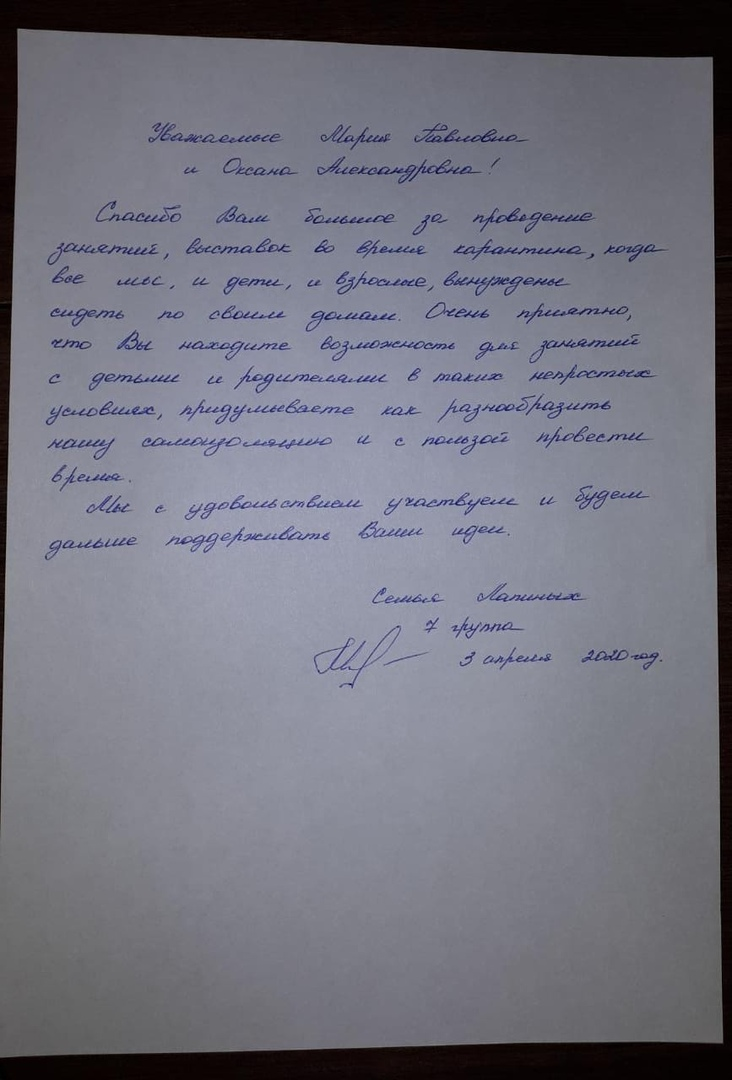 Уважаемые Мария Павловна
и Оксана Александровна!
Спасибо Вам большое за проведение
занятий, выставок во время карантина, когда
все мы, и дети, и взрослые, вынуждены
сидеть по своим домам. Очень приятно,
что Вы находите возможность для занятий
с детьми и родителями в таких непростых
условиях, придумываете как разнообразить
нашу самоизоляцию и с пользой провести
время.
Мы с удовольствием участвуем и будем
дальше поддерживать Ваши идеи.
Семья Лапиных
7 группа
3 апреля 2020 год.